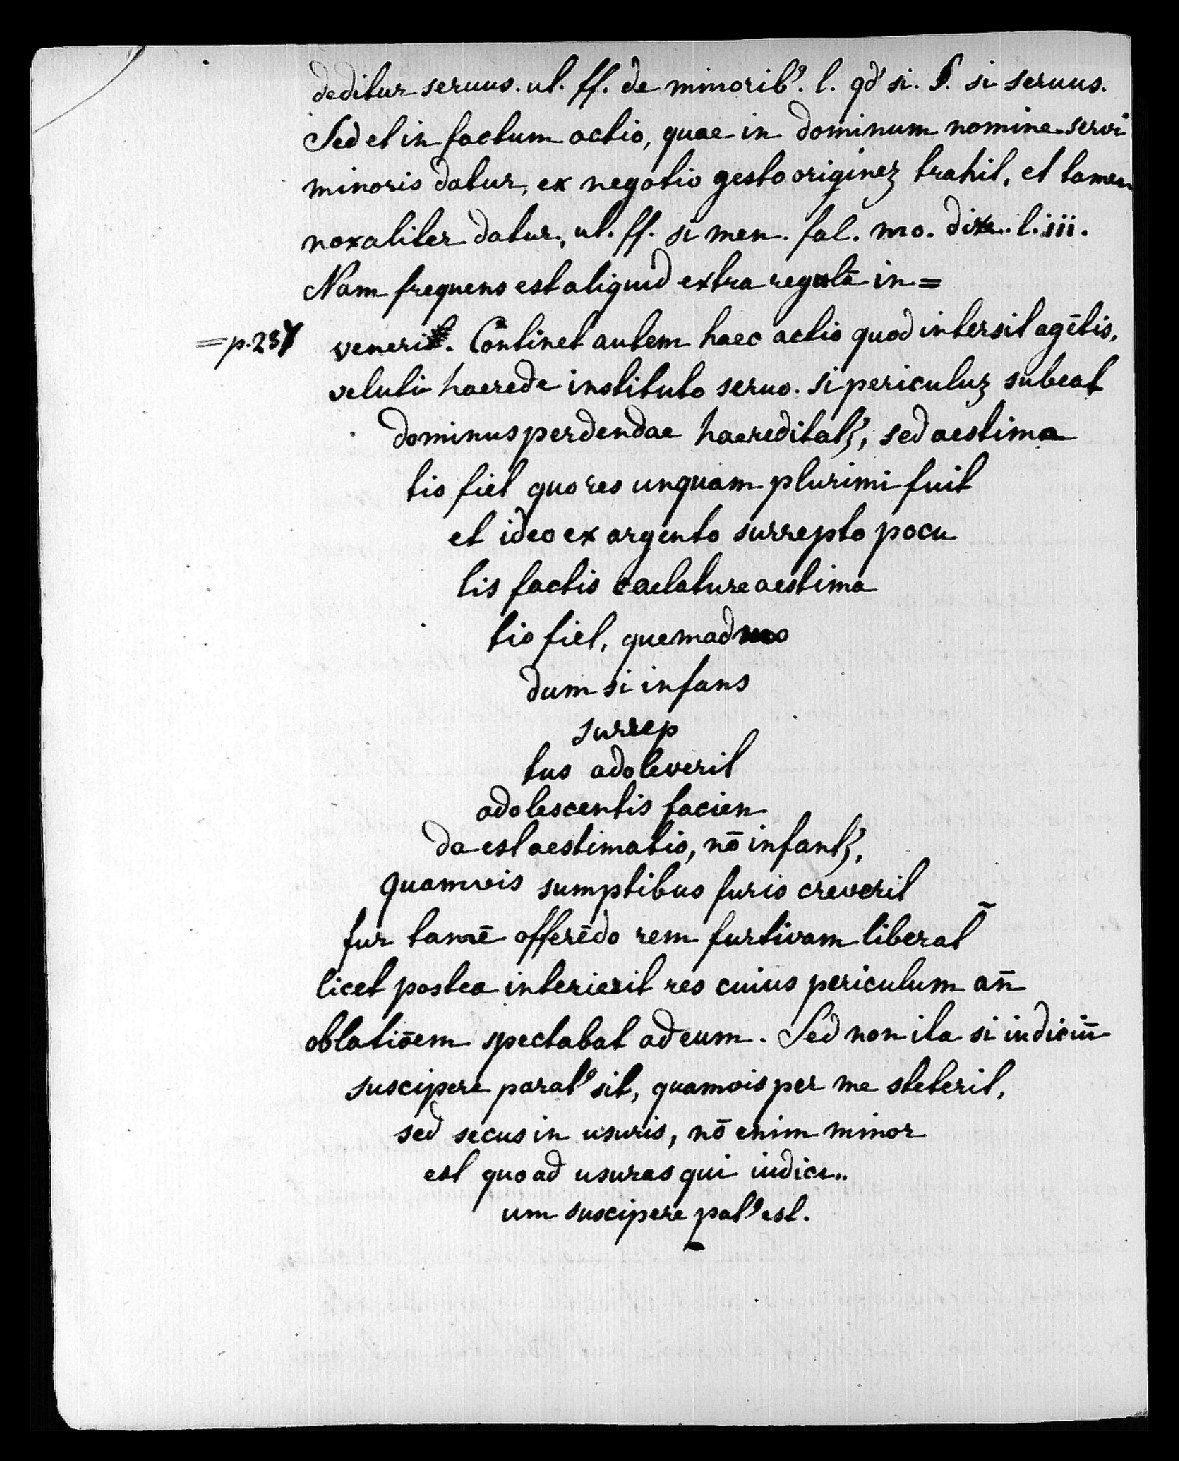 deditur seruus. ut. ff. de minorib⁹. l. qd' si. §. si seruus.
Sed et in factum actio, quae in dominum nomine servi
minoris datur, ex negotio gesto origineʒ trahit, et tamen
noxaliter datur, ut. ff. si men. fal. mo. dixe. l. iii.
Nam frequens est aliquid extra regulā in=
=p.237 venerit. Continet autem haec actio quod intersit agētis,
veluti haerede instituto seruo. si periculuʒ subeat
dominus perdendae haereditatʒ', sed aestima
tio fiet quo res unquam plurimi fuit
et ideo ex argento surrepto pocu
lis factis caelature aestima
tio fiet, quemadmo
dum si infans
surrep
tus adoleverit
adolescentis facien
da est aestimatio, nō infantʒ',
quamvis sumptibus furis creverit
fur tamē offerēdo rem furtivam liberat̄
licet postea interierit res cuius periculum an̄
oblatiōem spectabat ad eum. Sed non ita si iudiciū
suscipere parat⁹ sit, quamvis per me steterit,
sed secus in usuris, nō enim minor
est quoad usuras qui iudici..
um suscipere pat⁹ est.